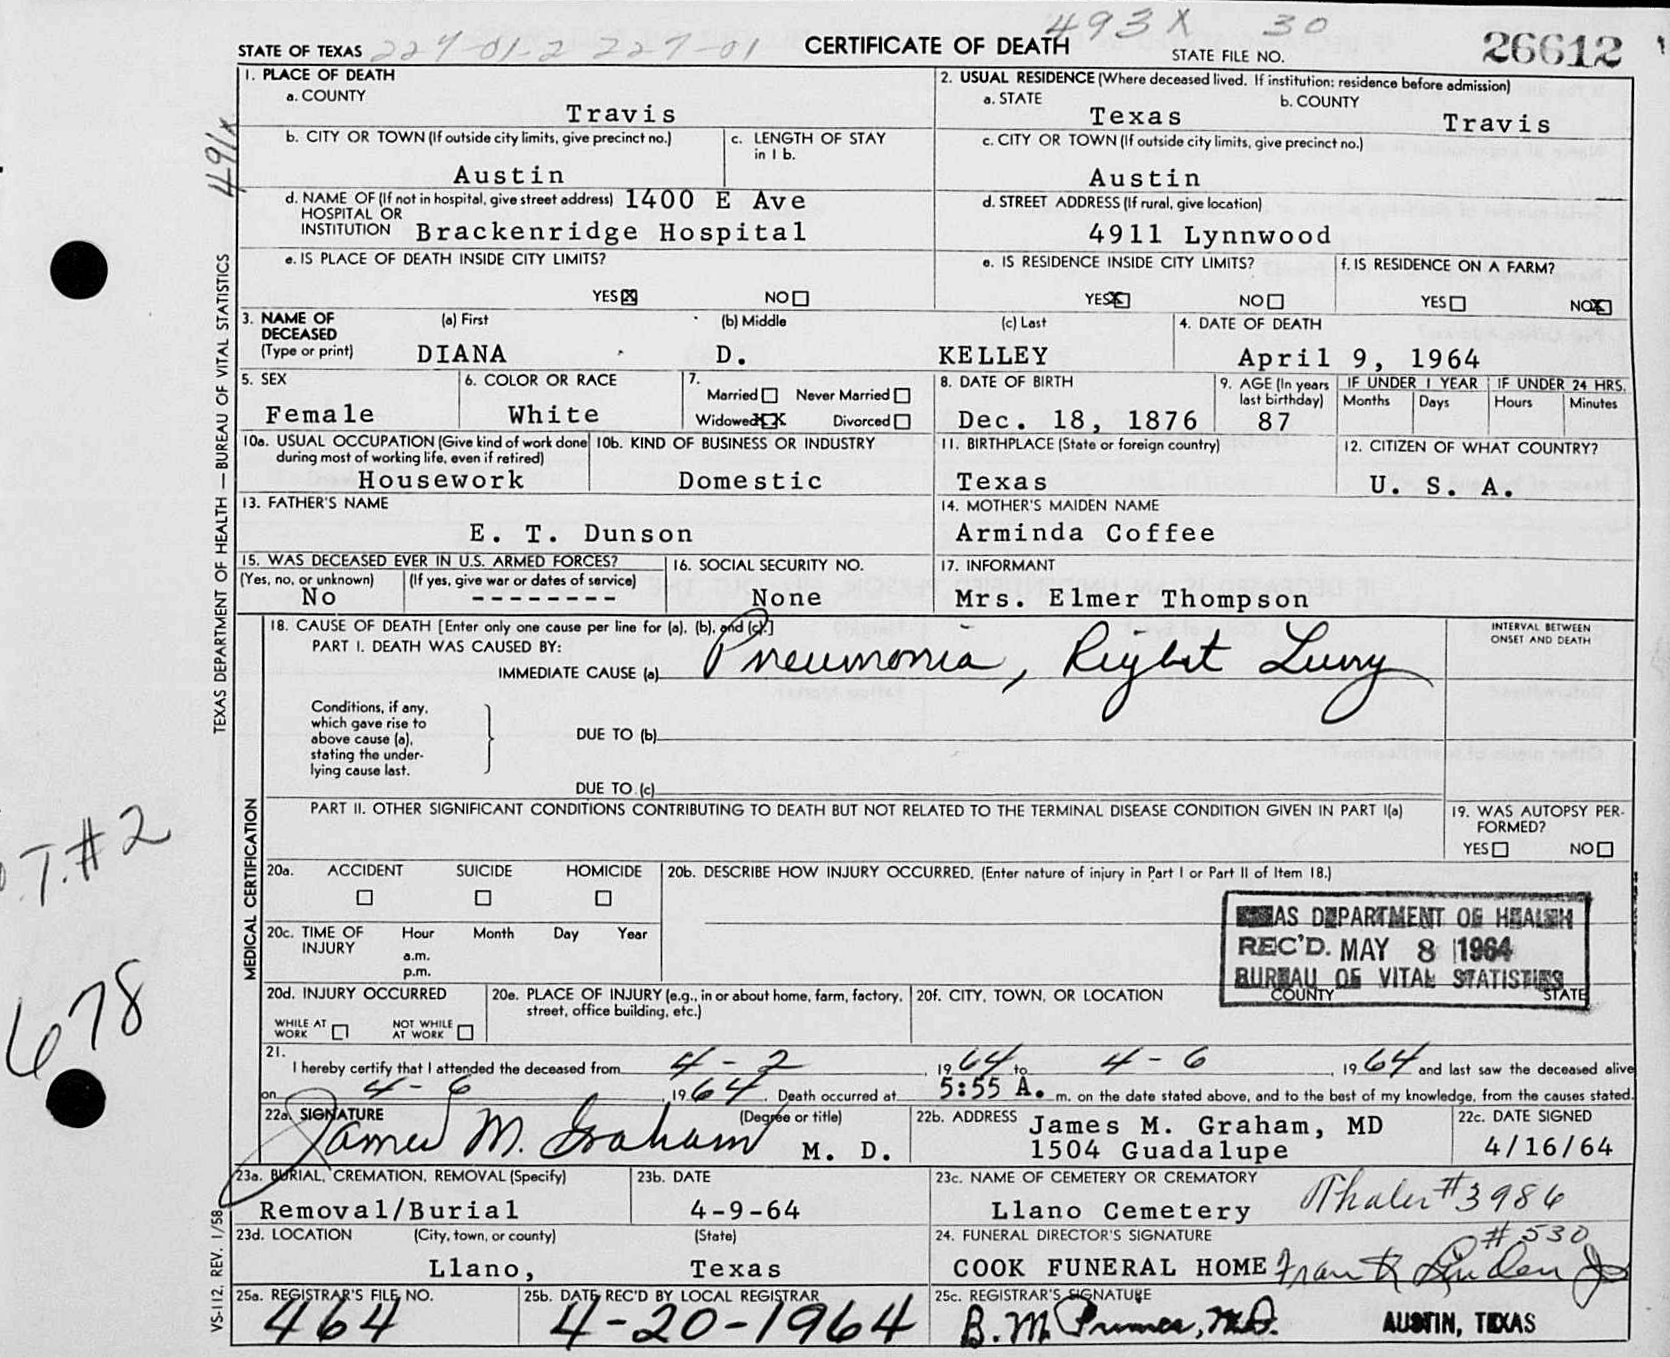 493X 30
STATE OF TEXAS 227-01-2 227-01 CERTIFICATE OF DEATH STATE FILE NO. 26612
1. PLACE OF DEATH
a. COUNTY
Travis
2. USUAL RESIDENCE (Where deceased lived. If institution: residence before admission)
a. STATE b. COUNTY
Texas Travis
b. CITY OR TOWN (If outside city limits, give precinct no.) c. LENGTH OF STAY in 1 b.
Austin
c. CITY OR TOWN (If outside city limits, give precinct no.)
Austin
d. NAME OF (If not in hospital, give street address) 1400 E Ave
HOSPITAL OR
INSTITUTION Brackenridge Hospital
d. STREET ADDRESS (If rural, give location)
4911 Lynnwood
e. IS PLACE OF DEATH INSIDE CITY LIMITS?
YES X NO
e. IS RESIDENCE INSIDE CITY LIMITS? f. IS RESIDENCE ON A FARM?
YES X NO YES NO X
3. NAME OF DECEASED (Type or print) (a) First (b) Middle (c) Last
DIANA D. KELLEY
4. DATE OF DEATH
April 9, 1964
5. SEX
Female
6. COLOR OR RACE
White
7.
Married Never Married
Widowed XX Divorced
8. DATE OF BIRTH
Dec. 18, 1876
9. AGE (In years last birthday)
87
IF UNDER 1 YEAR IF UNDER 24 HRS.
Months Days Hours Minutes
10a. USUAL OCCUPATION (Give kind of work done during most of working life, even if retired)
Housework
10b. KIND OF BUSINESS OR INDUSTRY
Domestic
11. BIRTHPLACE (State or foreign country)
Texas
12. CITIZEN OF WHAT COUNTRY?
U. S. A.
13. FATHER'S NAME
E. T. Dunson
14. MOTHER'S MAIDEN NAME
Arminda Coffee
15. WAS DECEASED EVER IN U.S. ARMED FORCES?
(Yes, no, or unknown) (If yes, give war or dates of service)
No --------
16. SOCIAL SECURITY NO.
None
17. INFORMANT
Mrs. Elmer Thompson
18. CAUSE OF DEATH [Enter only one cause per line for (a), (b), and (c).]
PART I. DEATH WAS CAUSED BY:
IMMEDIATE CAUSE (a) Pneumonia, Right Lung
INTERVAL BETWEEN
ONSET AND DEATH
Conditions, if any,
which gave rise to
above cause (a),
stating the under-
lying cause last.
DUE TO (b)
DUE TO (c)
PART II. OTHER SIGNIFICANT CONDITIONS CONTRIBUTING TO DEATH BUT NOT RELATED TO THE TERMINAL DISEASE CONDITION GIVEN IN PART I(a)
19. WAS AUTOPSY PER-
FORMED?
YES NO
20a. ACCIDENT SUICIDE HOMICIDE
20b. DESCRIBE HOW INJURY OCCURRED. (Enter nature of injury in Part I or Part II of Item 18.)
20c. TIME OF INJURY Hour Month Day Year
a.m.
p.m.
TEXAS DEPARTMENT OF HEALTH
REC'D. MAY 8 1964
BUREAU OF VITAL STATISTICS
20d. INJURY OCCURRED
WHILE AT WORK NOT WHILE AT WORK
20e. PLACE OF INJURY (e.g., in or about home, farm, factory, street, office building, etc.)
20f. CITY, TOWN, OR LOCATION COUNTY STATE
21.
I hereby certify that I attended the deceased from 4-2, 1964 to 4-6, 1964 and last saw the deceased alive
on 4-6, 1964. Death occurred at 5:55 A. m. on the date stated above, and to the best of my knowledge, from the causes stated.
22a. SIGNATURE (Degree or title)
James M. Graham M. D.
22b. ADDRESS James M. Graham, MD
1504 Guadalupe
22c. DATE SIGNED
4/16/64
23a. BURIAL, CREMATION, REMOVAL (Specify)
Removal/Burial
23b. DATE
4-9-64
23c. NAME OF CEMETERY OR CREMATORY
Llano Cemetery #3986
23d. LOCATION (City, town, or county) (State)
Llano, Texas
24. FUNERAL DIRECTOR'S SIGNATURE #530
COOK FUNERAL HOME Frank
25a. REGISTRAR'S FILE NO.
464
25b. DATE REC'D BY LOCAL REGISTRAR
4-20-1964
25c. REGISTRAR'S SIGNATURE
B. M. Primer, M.D. AUSTIN, TEXAS
491X
TEXAS DEPARTMENT OF HEALTH — BUREAU OF VITAL STATISTICS
MEDICAL CERTIFICATION
VS-112, REV. 1/58
T. #2
678